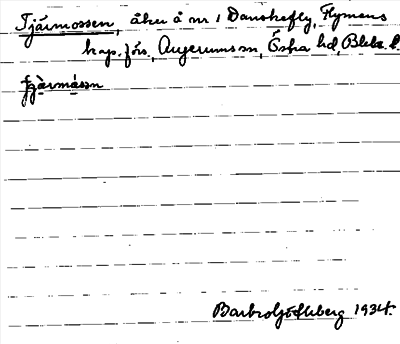 Tjärmossen, åker å nr 1 Danskefly, Flymens
kap. förs, Augerums sn, Östra hd, Blek. l.
Barbro Söderberg 1934.